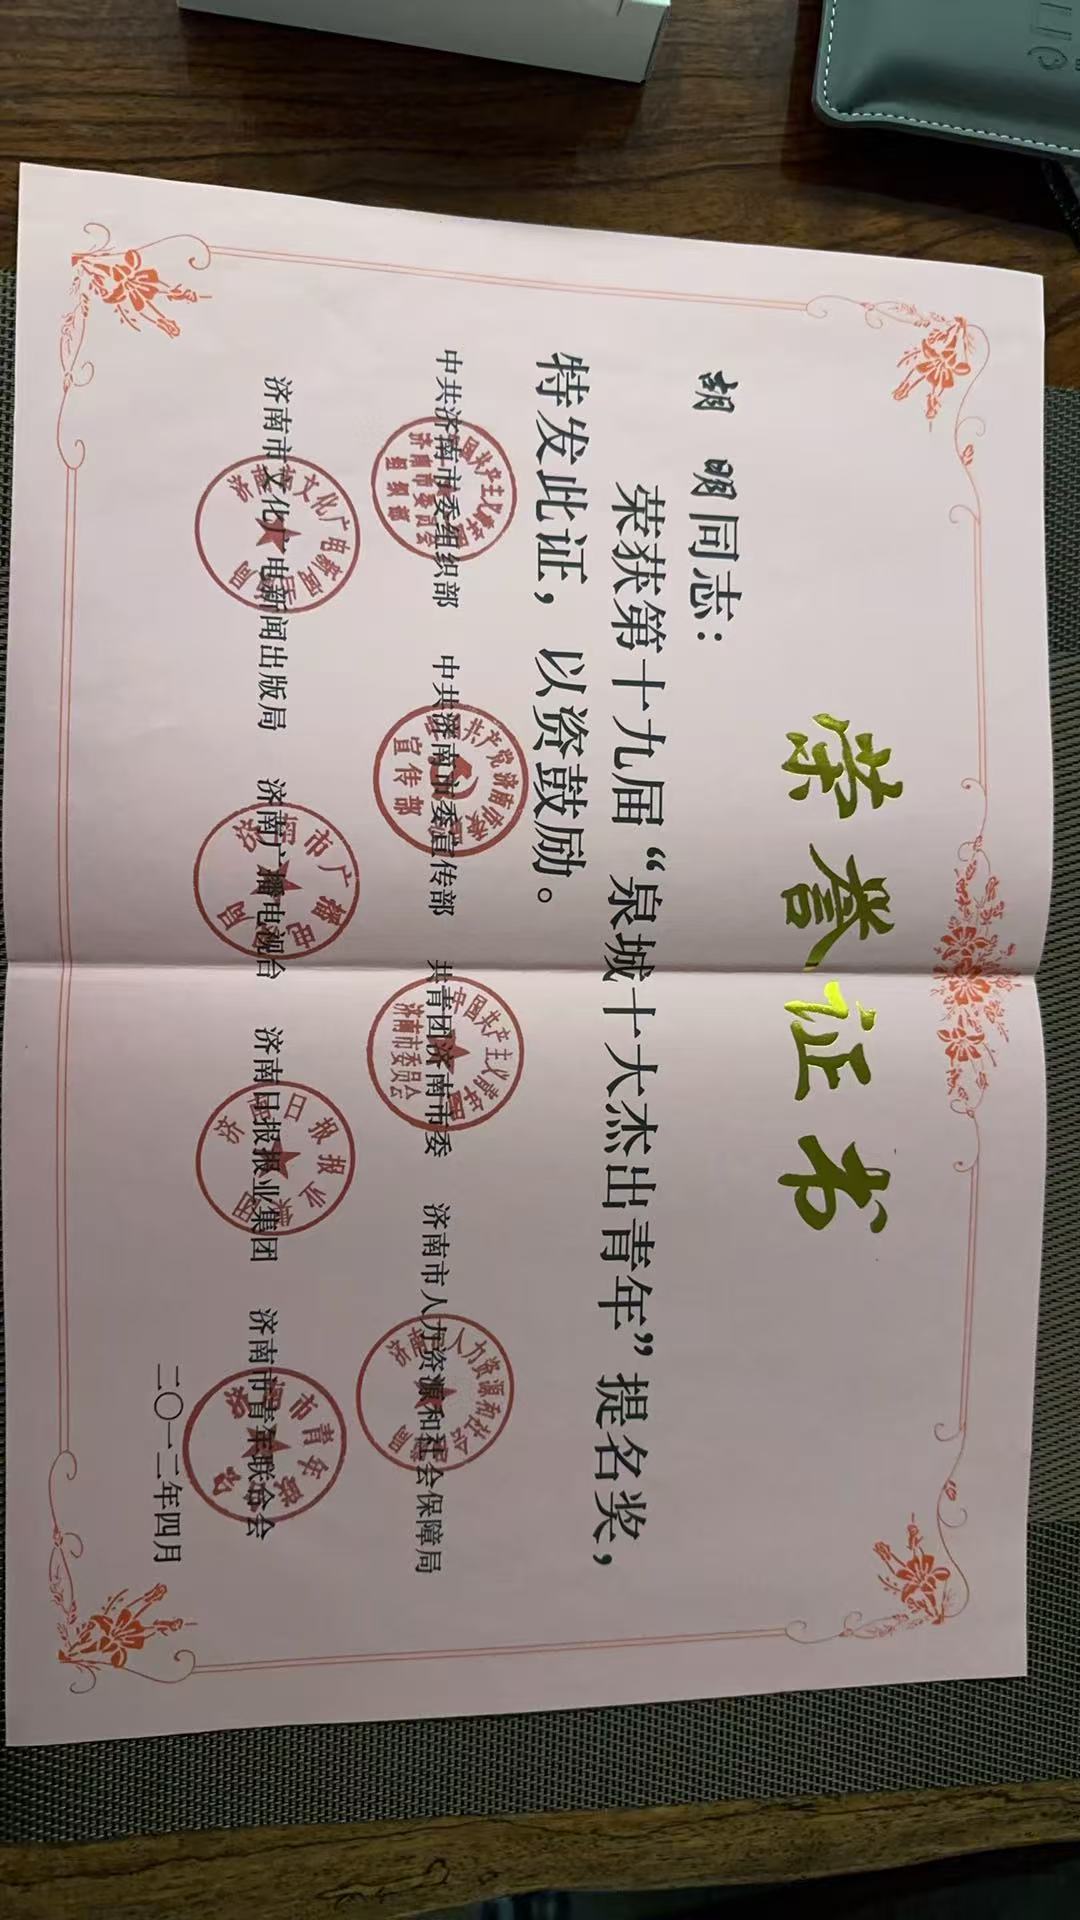 荣誉证书
胡明同志：
荣获第十九届“泉城十大杰出青年”提名奖，
特发此证，以资鼓励。
中共济南市委组织部 中共济南市委宣传部 共青团济南市委 济南市人力资源和社会保障局
济南市文化广电新闻出版局 济南广播电视台 济南日报报业集团 济南市青年联合会
二〇一二年四月